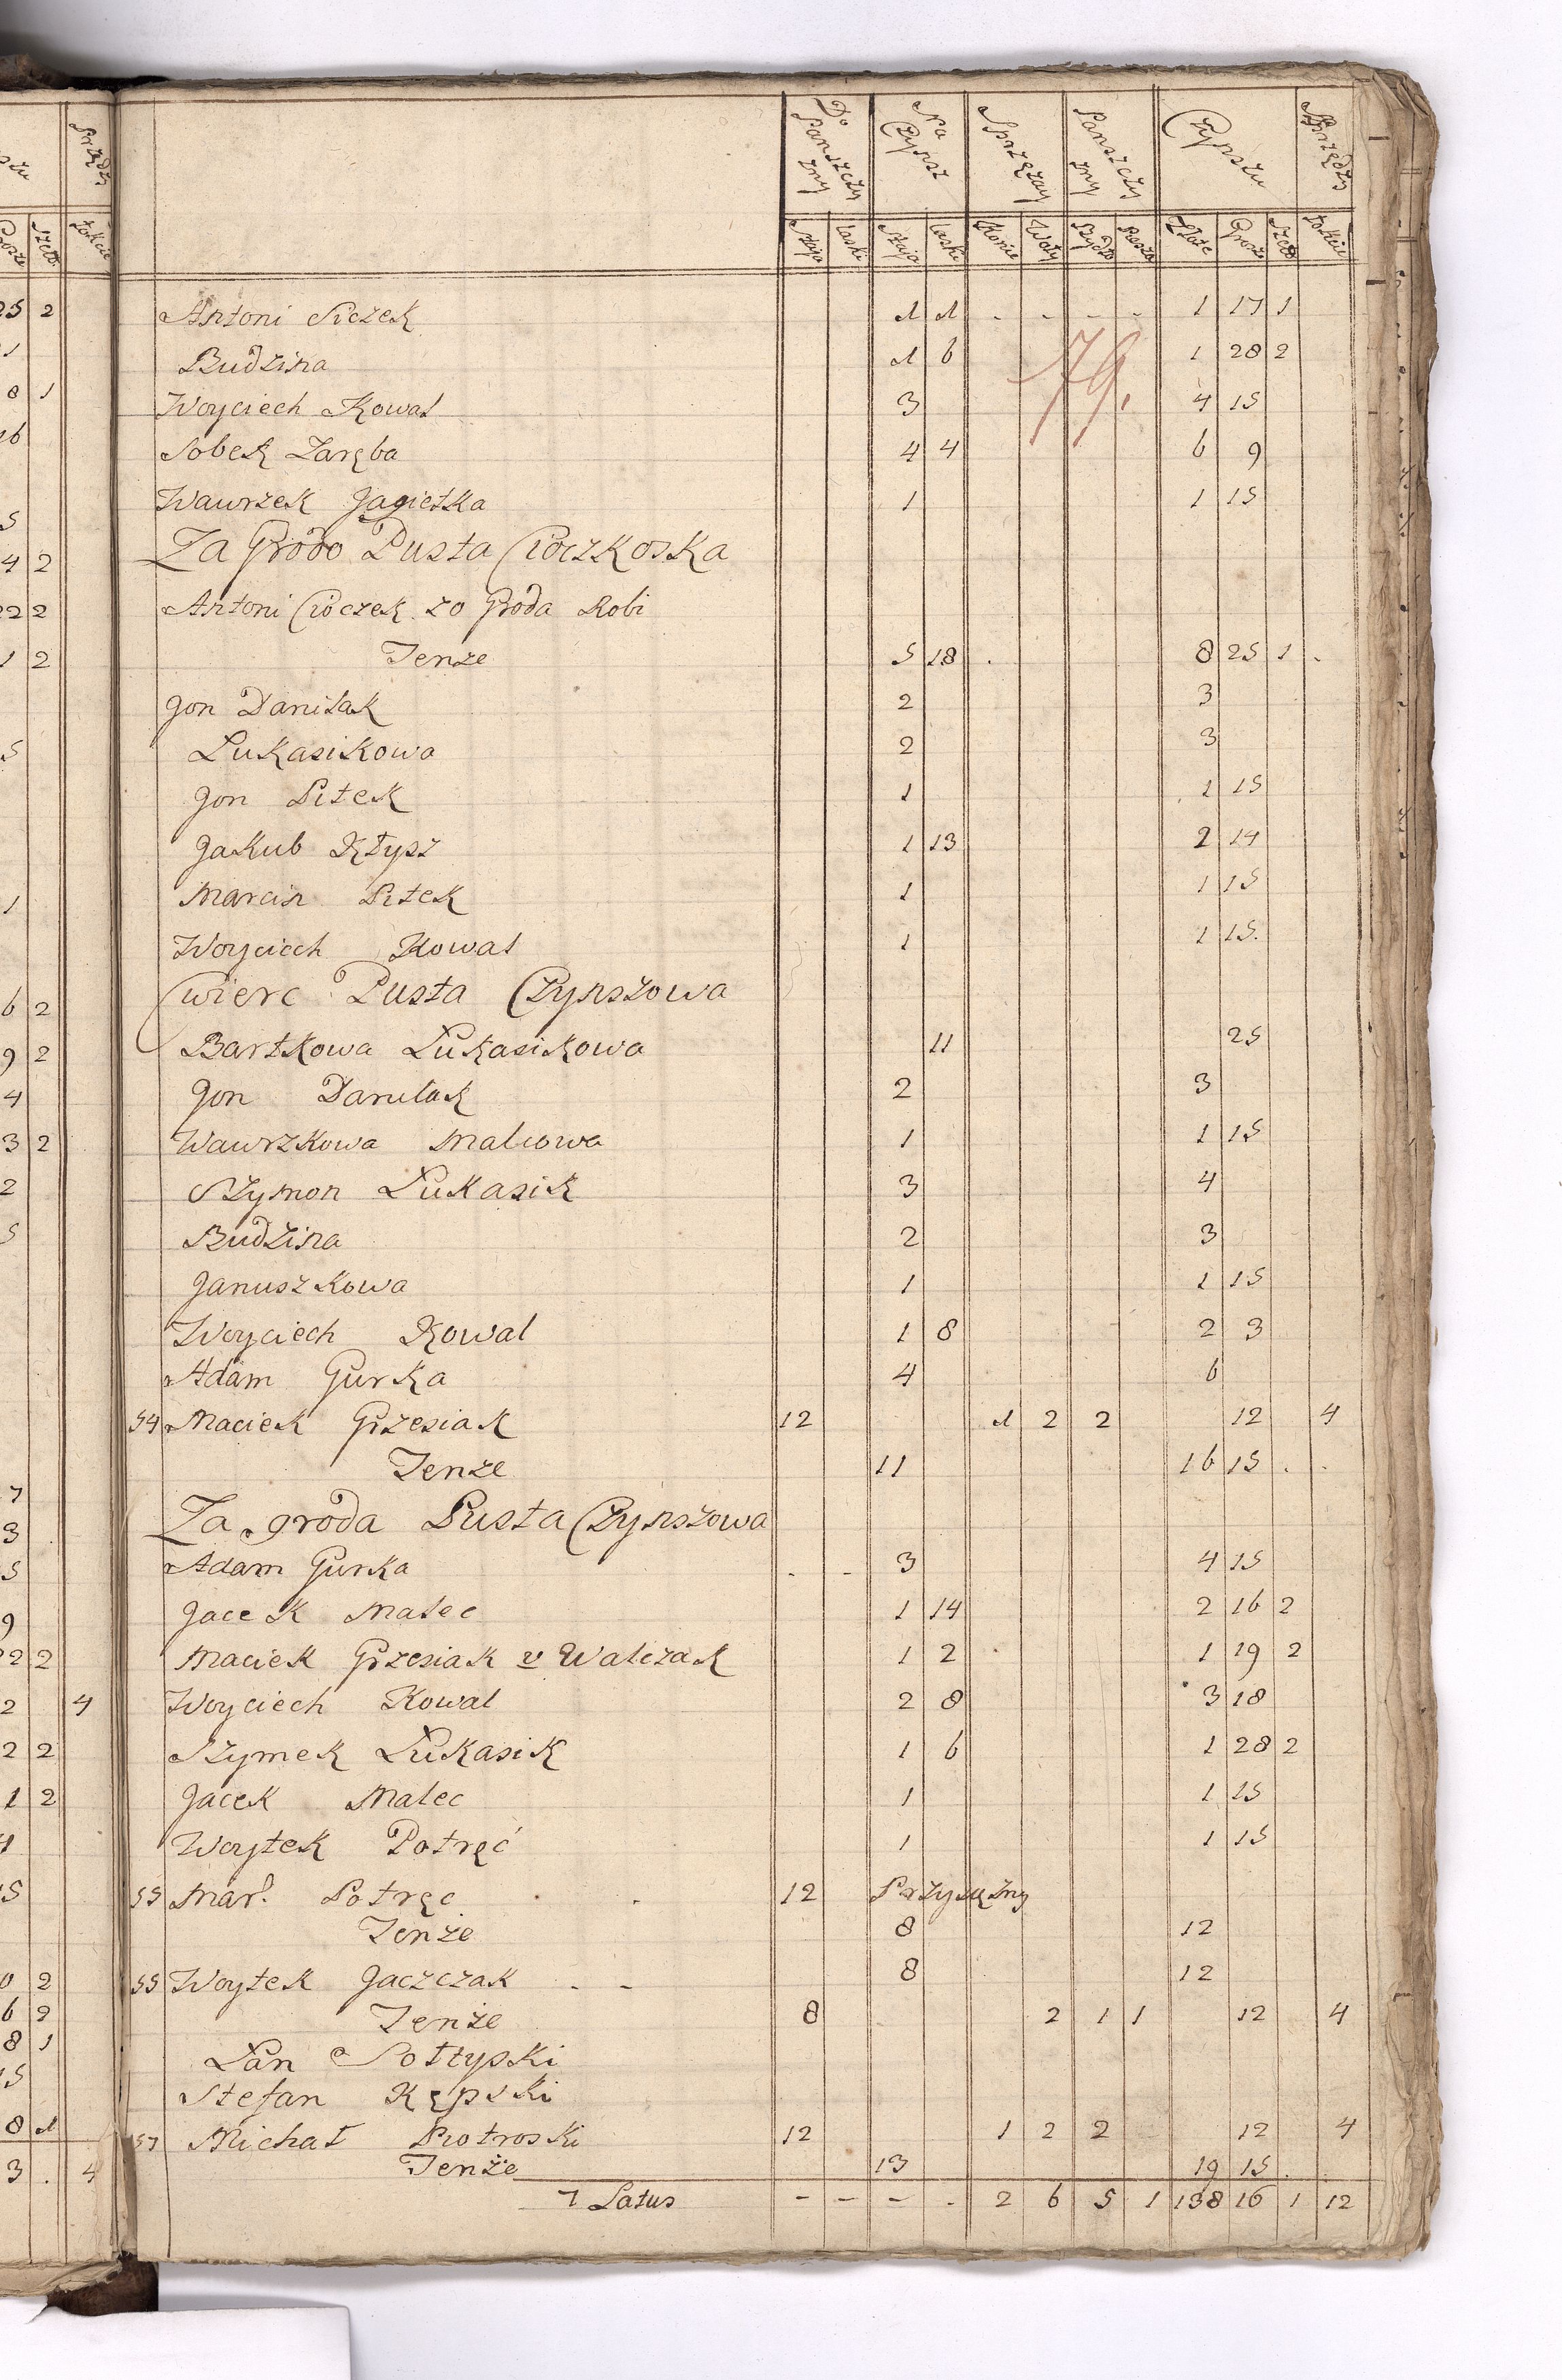 Do Panszczyzny | Na Czynsz | Sprzężay | Panszczyzny | Czynszu | Przędzy
Staja | laski | Staja | laski | Konie | Woły | Bydło | Piesza | Złote | Grosze | Szelą | łokcie
Antoni Siczek 1 1 - - - - 1 17 1
79.
Budzina 1 6 1 28 2
Woyciech Kowal 3 4 15
Sobek Zaręba 4 4 6 9
Wawrzek Jagiełka 1 1 15
Za Grodo Pusta Cioczkoska
Antoni Cioczek zo Groda Robi
Tenze 5 18 . 8 25 1 .
Jon Daniłak 2 3
Lukasikowa 2 3
Jon Pitek 1 1 15
Jakub Kłysz 1 13 2 14
Marcin Pitek 1 1 15
Woyciech Kowal 1 1 15.
Cwierc Pusta Czynszowa
Bartkowa Lukasikowa 11 25
Jon Daniłak 2 3
Wawrzkowa Malcowa 1 1 15
Szymon Lukasik 3 4
Budzina 2 3
Januszkowa 1 1 15
Woyciech Kowal 1 8 2 3
Adam Gurka 4 6
54 Maciek Grzesiak 12 1 2 2 12 4
Tenze 11 16 15 . .
Za groda Pusta Czynszowa
Adam Gurka - - 3 4 15
Jacek Malec 1 14 2 16 2
Maciek Grzesiak v Walczak 1 2 1 19 2
Woyciech Kowal 2 8 3 18
Szymek Lukasik 1 6 1 28 2
Jacek Malec 1 1 15
Woytek Potręć 1 1 15
55 Mar. Potręc 12 Przysiężny
Tenże 8 12
55 Woytek Jaczczak - - 8 12
Tenże 8 2 1 1 12 4
Łan Sołtyski
Stefan Kępski
57 Michał Piotroski 12 1 2 2 12 4
Tenże 13 19 15 . .
Latus - - - - 2 6 5 1 138 16 1 12